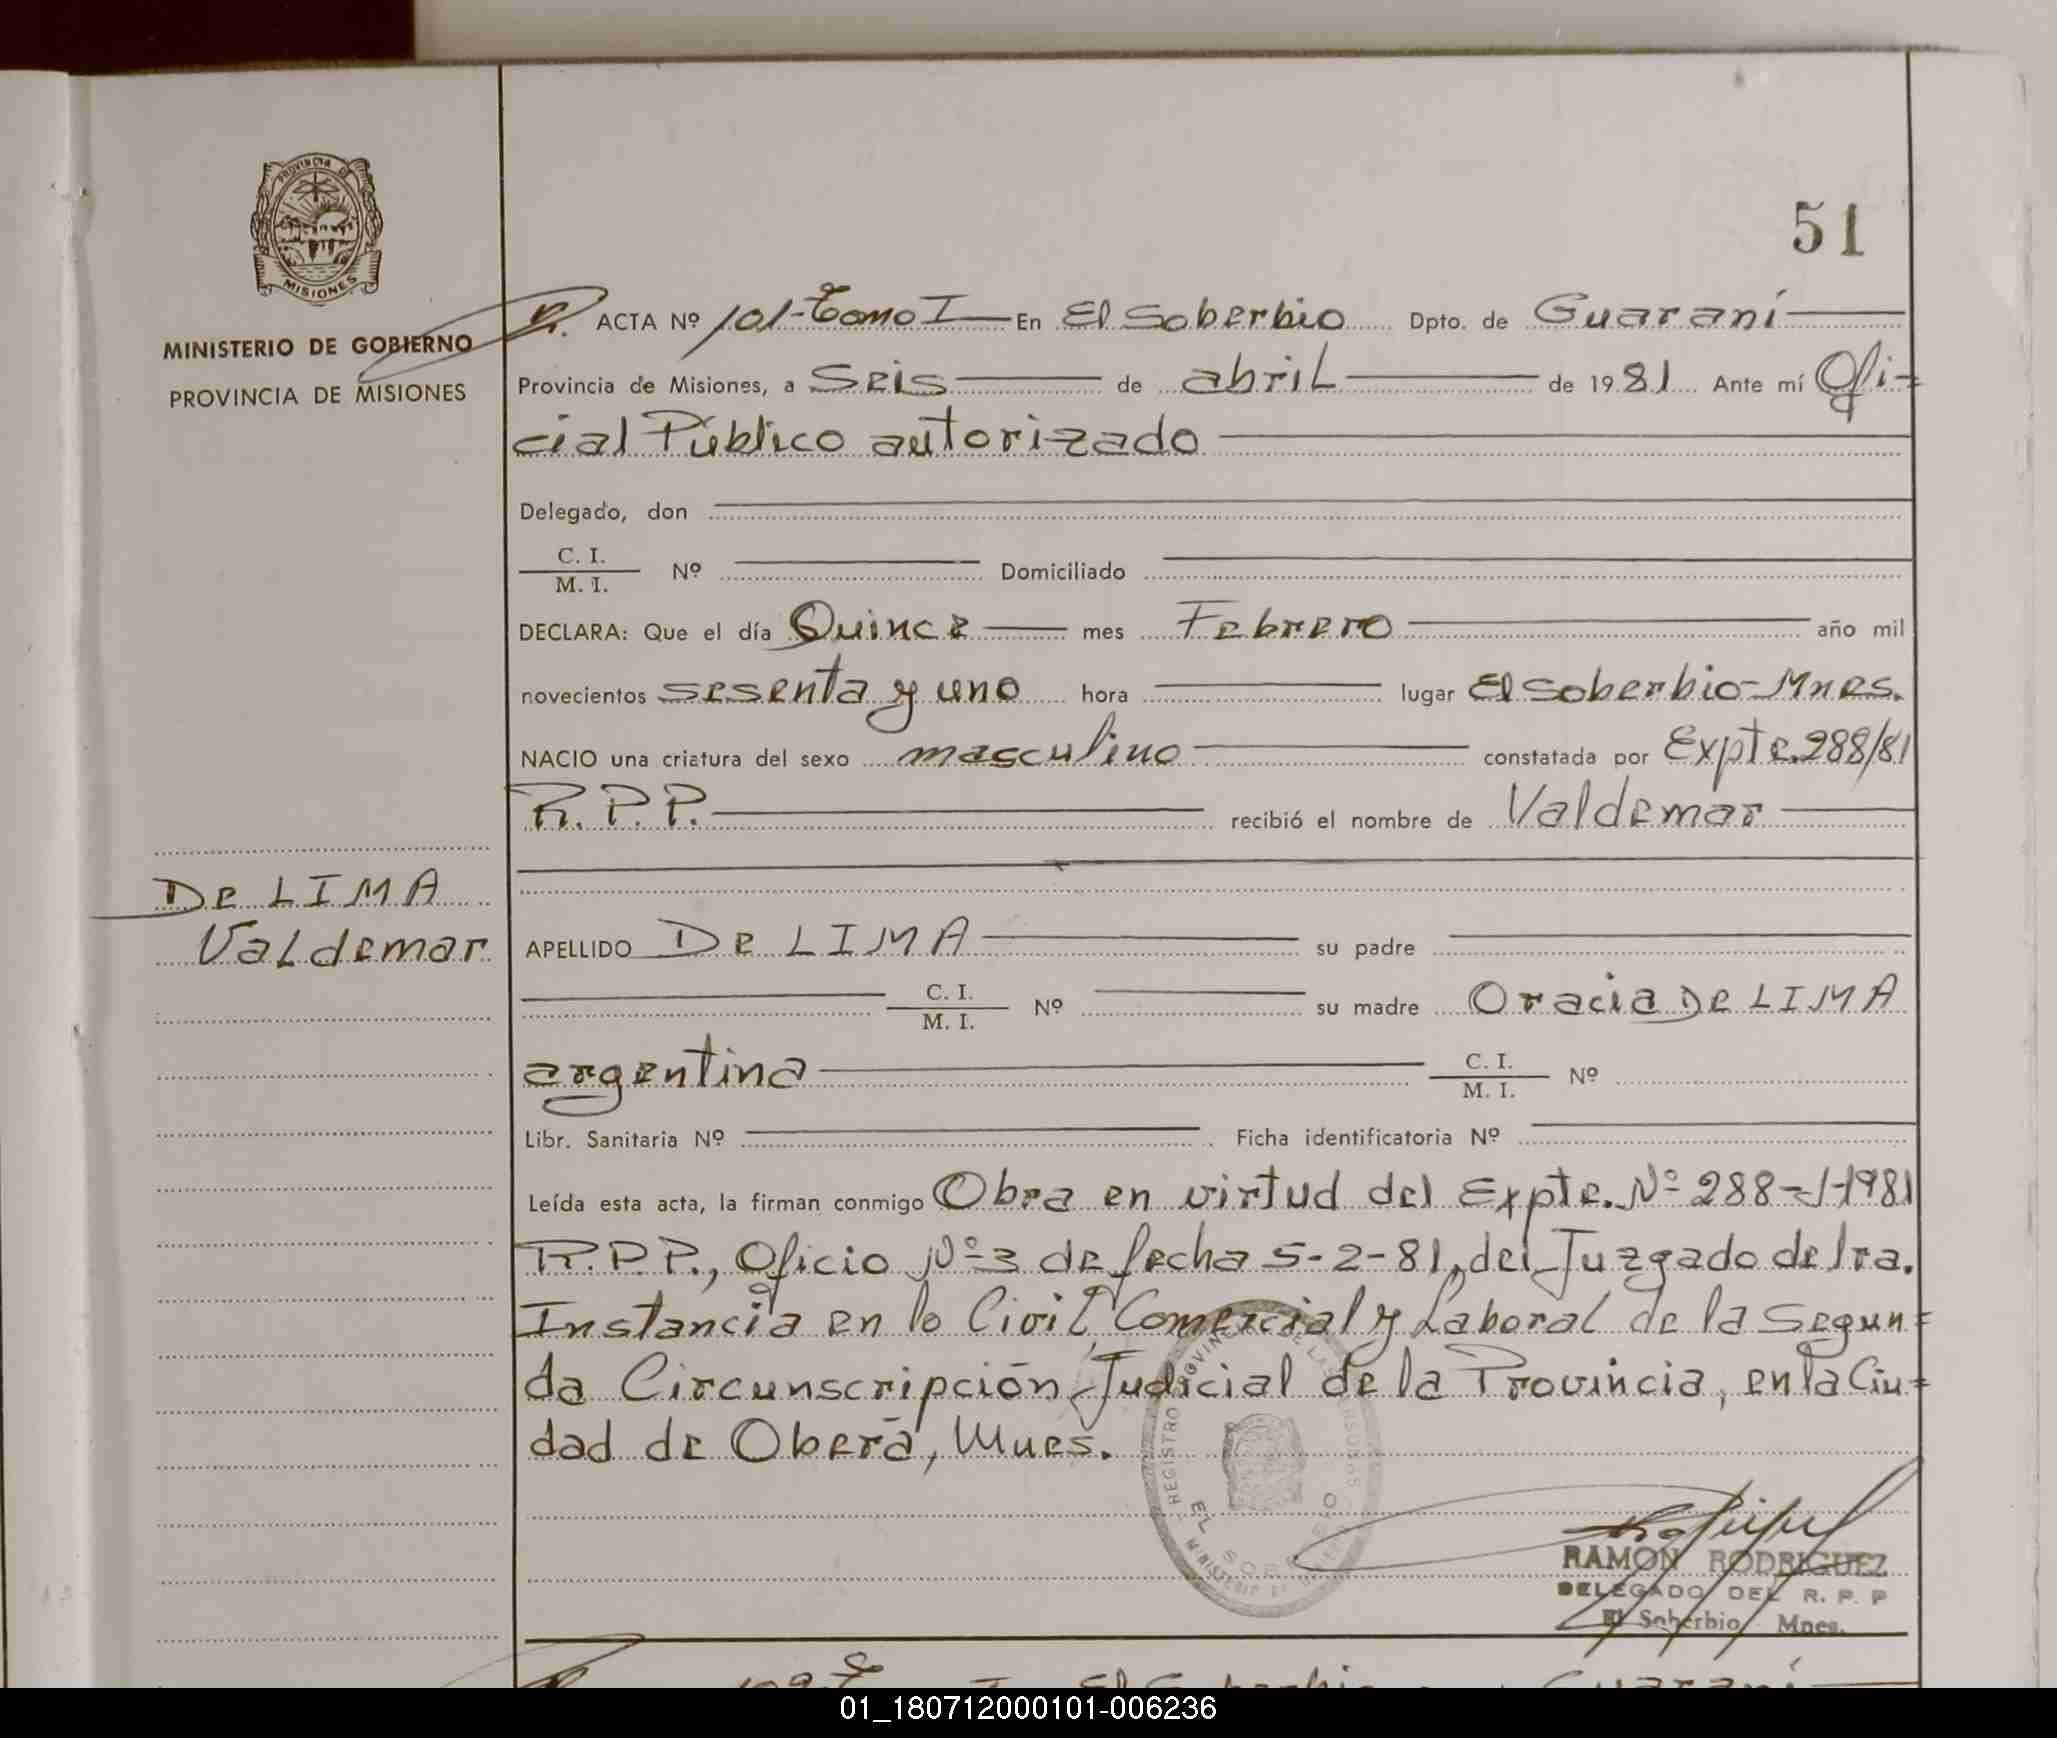 51
PROVINCIA DE
MISIONES
MINISTERIO DE GOBIERNO
PROVINCIA DE MISIONES
ACTA Nº 101-Tomo I En El Soberbio Dpto. de Guaraní
Provincia de Misiones, a Seis de abril de 1981 Ante mí Ofi-
cial Público autorizado
Delegado, don
C. I.
M. I. Nº Domiciliado
DECLARA: Que el día Quince mes Febrero año mil
novecientos sesenta y uno hora lugar El Soberbio-Mnes.
NACIO una criatura del sexo masculino constatada por Expte. 288/81
R.P.P. recibió el nombre de Valdemar
De LIMA
Valdemar
APELLIDO De LIMA su padre
C. I.
M. I. Nº su madre Oracia De LIMA
argentina C. I.
M. I. Nº
Libr. Sanitaria Nº Ficha identificatoria Nº
Leída esta acta, la firman conmigo Obra en virtud del Expte. Nº 288-J-1981
R.P.P., Oficio Nº 3 de fecha 5-2-81, del Juzgado de 1ra.
Instancia en lo Civil, Comercial y Laboral de la Segun=
da Circunscripción Judicial de la Provincia, en la Ciu=
dad de Oberá, Mnes.
EL SOBERBIO
RAMON RODRIGUEZ
DELEGADO DEL R. P. P
El Soberbio Mnes.
01_180712000101-006236